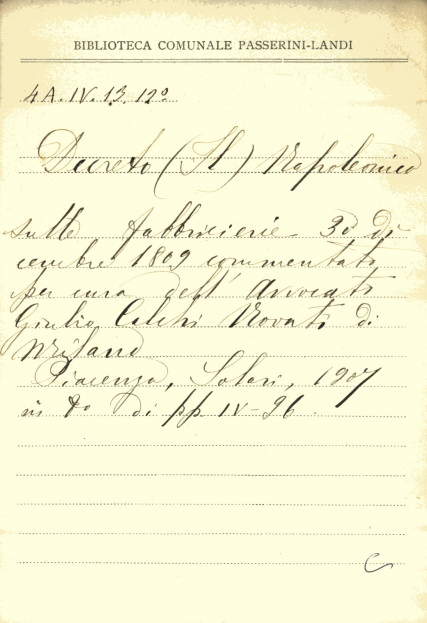 BIBLIOTECA COMUNALE PASSERINI-LANDI
4A.IV.13.12º
Decreto (Il) Napoleonico
sulle fabbricerie - 30 di
cembre 1809 commentato
per cura dell' Avvocato
Giulio Novati di
Milano
Piacenza, Solari, 1907
in 8º di pp IV-96.